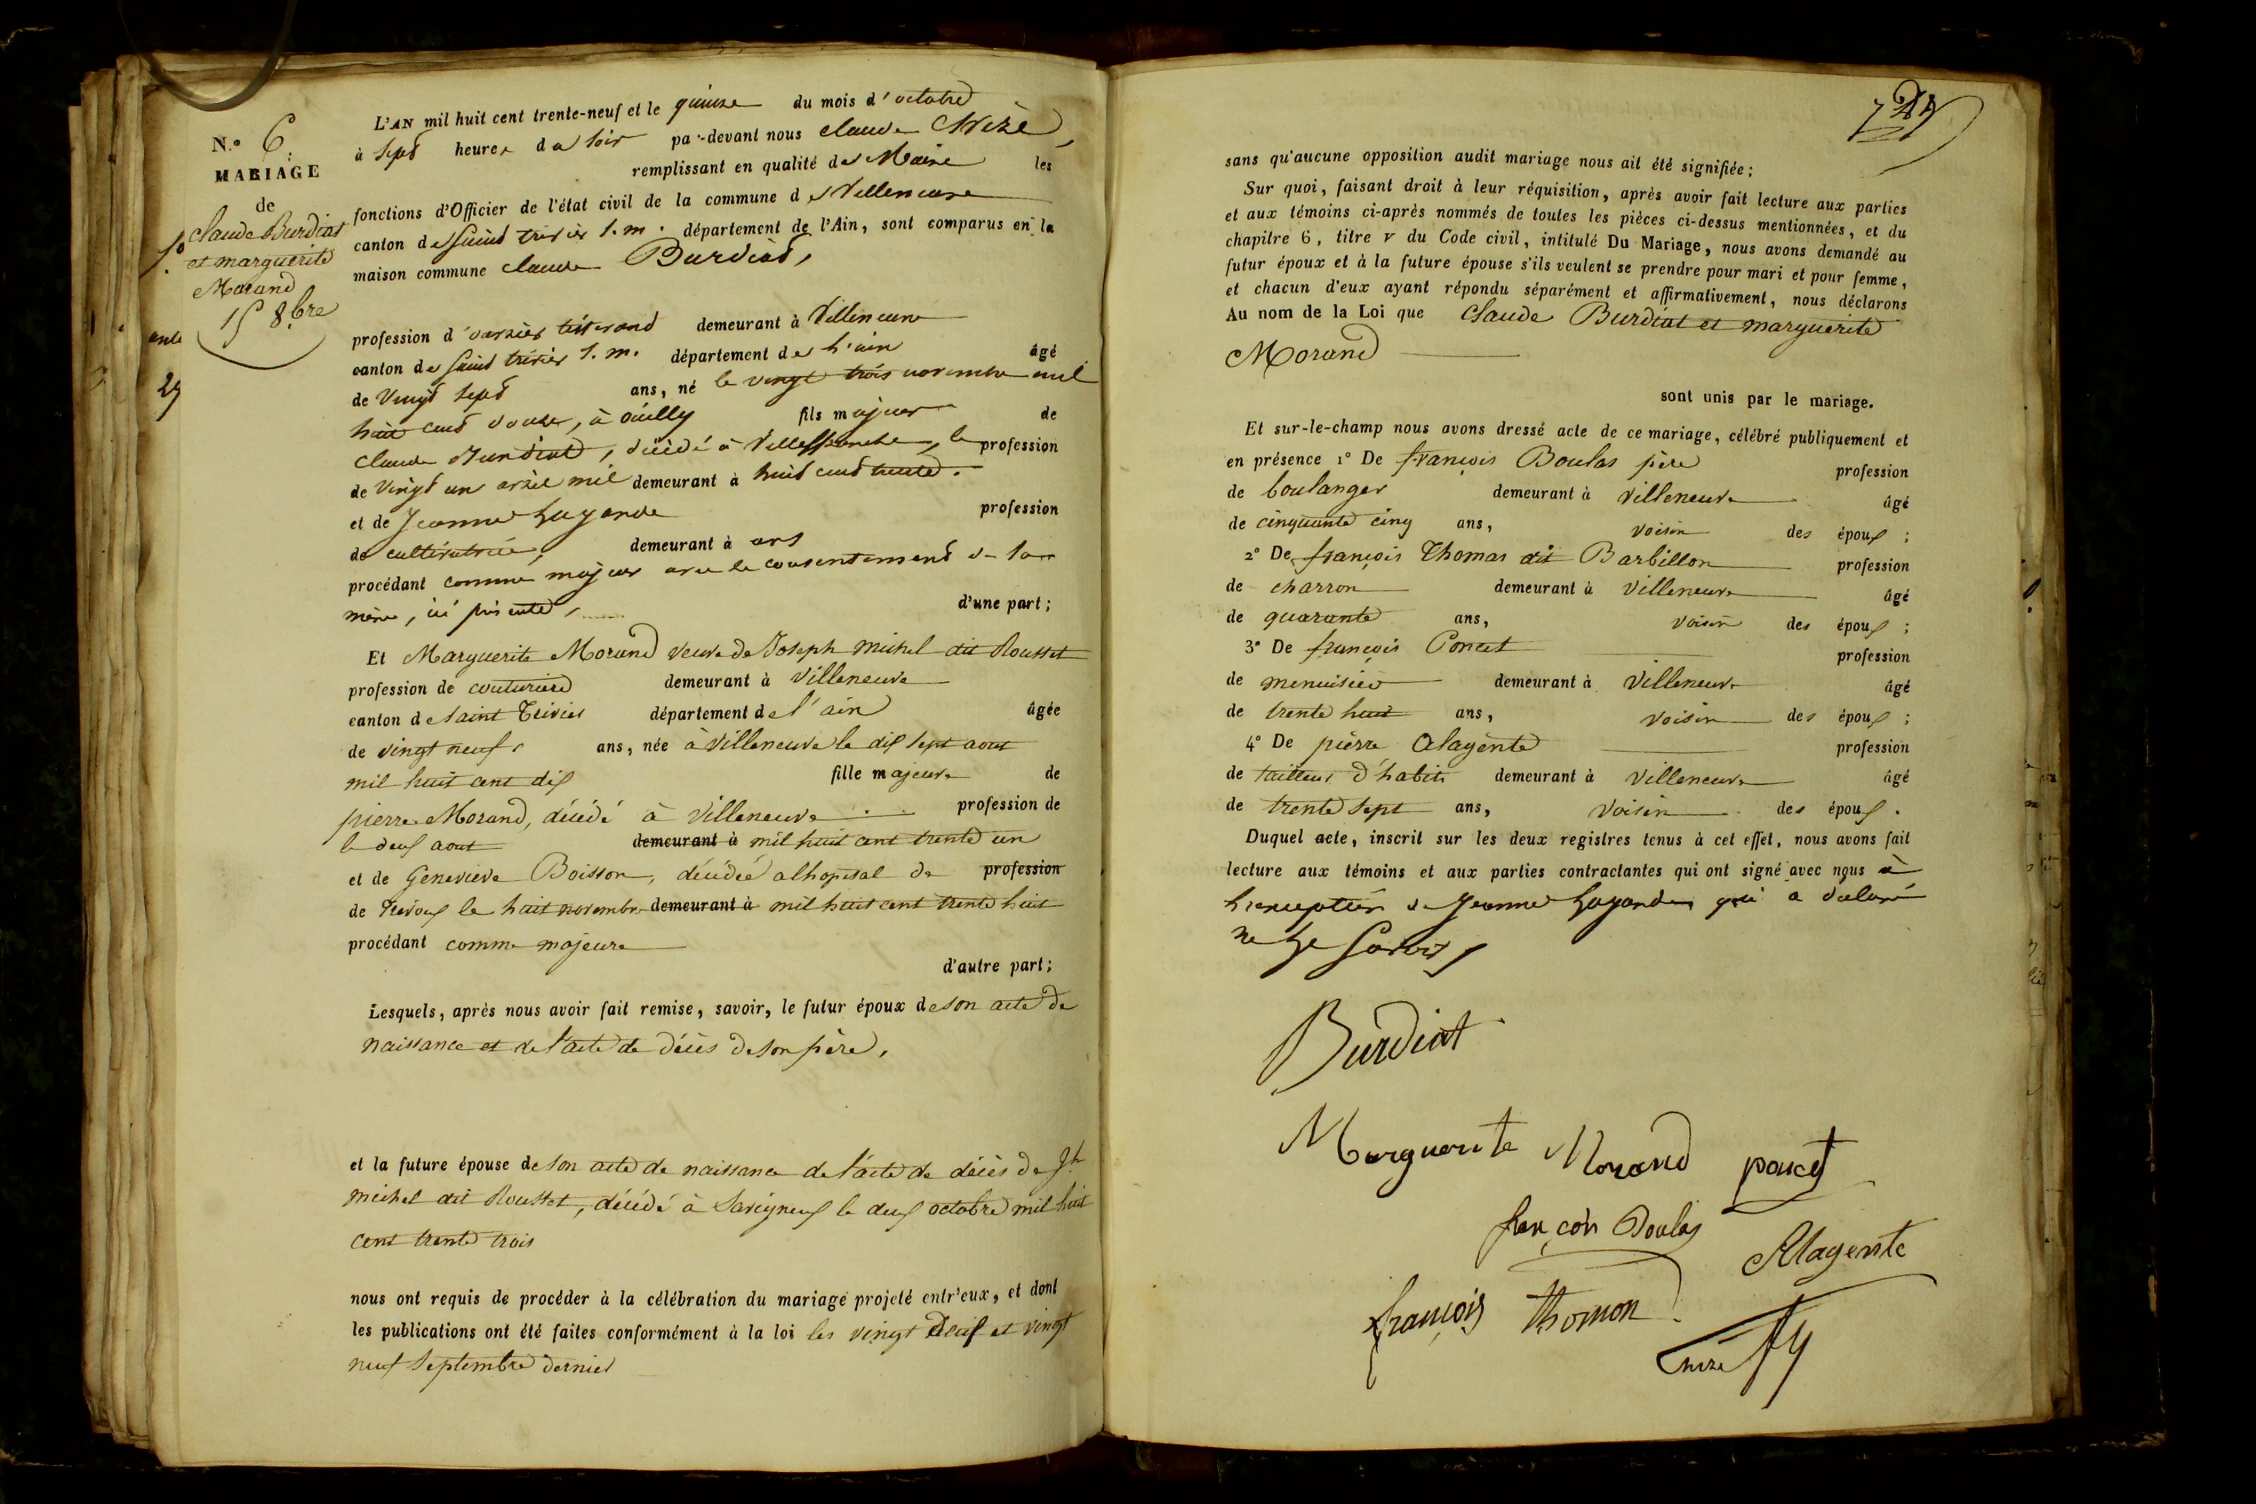 N.° 6.
MARIAGE
de
Claude Burdiat
et marguerite
Morand
15 8.bre
L'AN mil huit cent trente-neuf et le quinze du mois d'octobre
à sept heures du soir par-devant nous claude
remplissant en qualité de Maire les
fonctions d'Officier de l'état civil de la commune de Villeneuve
canton de Saint trivier s. m. département de l'Ain, sont comparus en la
maison commune claude Burdiat,
profession d' demeurant à Villeneuve
canton de Saint trivier s. m. département de l'ain âgé
de vingt sept ans, né le vingt trois novembre mil
huit cent douze, à ouilly fils majeur de
claude Burdiat, décédé à Villefranche, le profession
de vingt un avril mil demeurant à huit cent trente.
et de Jeanne Lagarde profession
de cultivatrice, demeurant à ars
procédant comme majeur avec le consentement de sa
mère, ici présente, d'une part;
Et Marguerite Morand veuve de Joseph michel dit Rousset
profession de couturiere demeurant à Villeneuve
canton de saint Trivier département de l'ain âgée
de vingt neuf ans, née à Villeneuve le dix sept aout
mil huit cent dix fille majeure de
pierre Morand, décédé à Villeneuve profession de
le deux aout demeurant à mil huit cent trente un
et de Genevieve Boisson, décédée a lhopital de profession
de Trevoux le huit novembre demeurant à mil huit cent trente huit
procédant comme majeure
d'autre part;
Lesquels, après nous avoir fait remise, savoir, le futur époux de son acte de
naissance et de l'acte de décès de son père,
et la future épouse de son acte de naissance de l'acte de décès de Jh
michel dit Rousset, décédé à Savigneux le deux octobre mil huit
cent trente trois
nous ont requis de procéder à la célébration du mariage projeté entr'eux, et dont
les publications ont été faites conformément à la loi les vingt deux et vingt
neuf septembre dernier
sans qu'aucune opposition audit mariage nous ait été signifiée;
Sur quoi, faisant droit à leur réquisition, après avoir fait lecture aux parties
et aux témoins ci-après nommés de toutes les pièces ci-dessus mentionnées, et du
chapitre 6, titre v du Code civil, intitulé Du Mariage, nous avons demandé au
futur époux et à la future épouse s'ils veulent se prendre pour mari et pour femme,
et chacun d'eux ayant répondu séparément et affirmativement, nous déclarons
Au nom de la Loi que Claude Burdiat et marguerite
Morand
sont unis par le mariage.
Et sur-le-champ nous avons dressé acte de ce mariage, célébré publiquement et
en présence 1° De françois Boulas père profession
de boulanger demeurant à villeneuve âgé
de cinquante cinq ans, voisin des époux ;
2° De françois Thomas dit Barbillon profession
de charron demeurant à villeneuve âgé
de quarante ans, voisin des époux ;
3° De françois Poncet profession
de menuisier demeurant à Villeneuve âgé
de trente huit ans, voisin des époux ;
4° De pierre Alagente profession
de tailleur d'habits demeurant à villeneuve âgé
de trente sept ans, voisin des époux .
Duquel acte, inscrit sur les deux registres tenus à cet effet, nous avons fait
lecture aux témoins et aux parties contractantes qui ont signé avec nous à
l'exception de Jeanne Lagarde qui a déclaré
ne le savoir
Burdiat
Marguerite Morand poncet
françois Boulas
Alagente
françois thomon